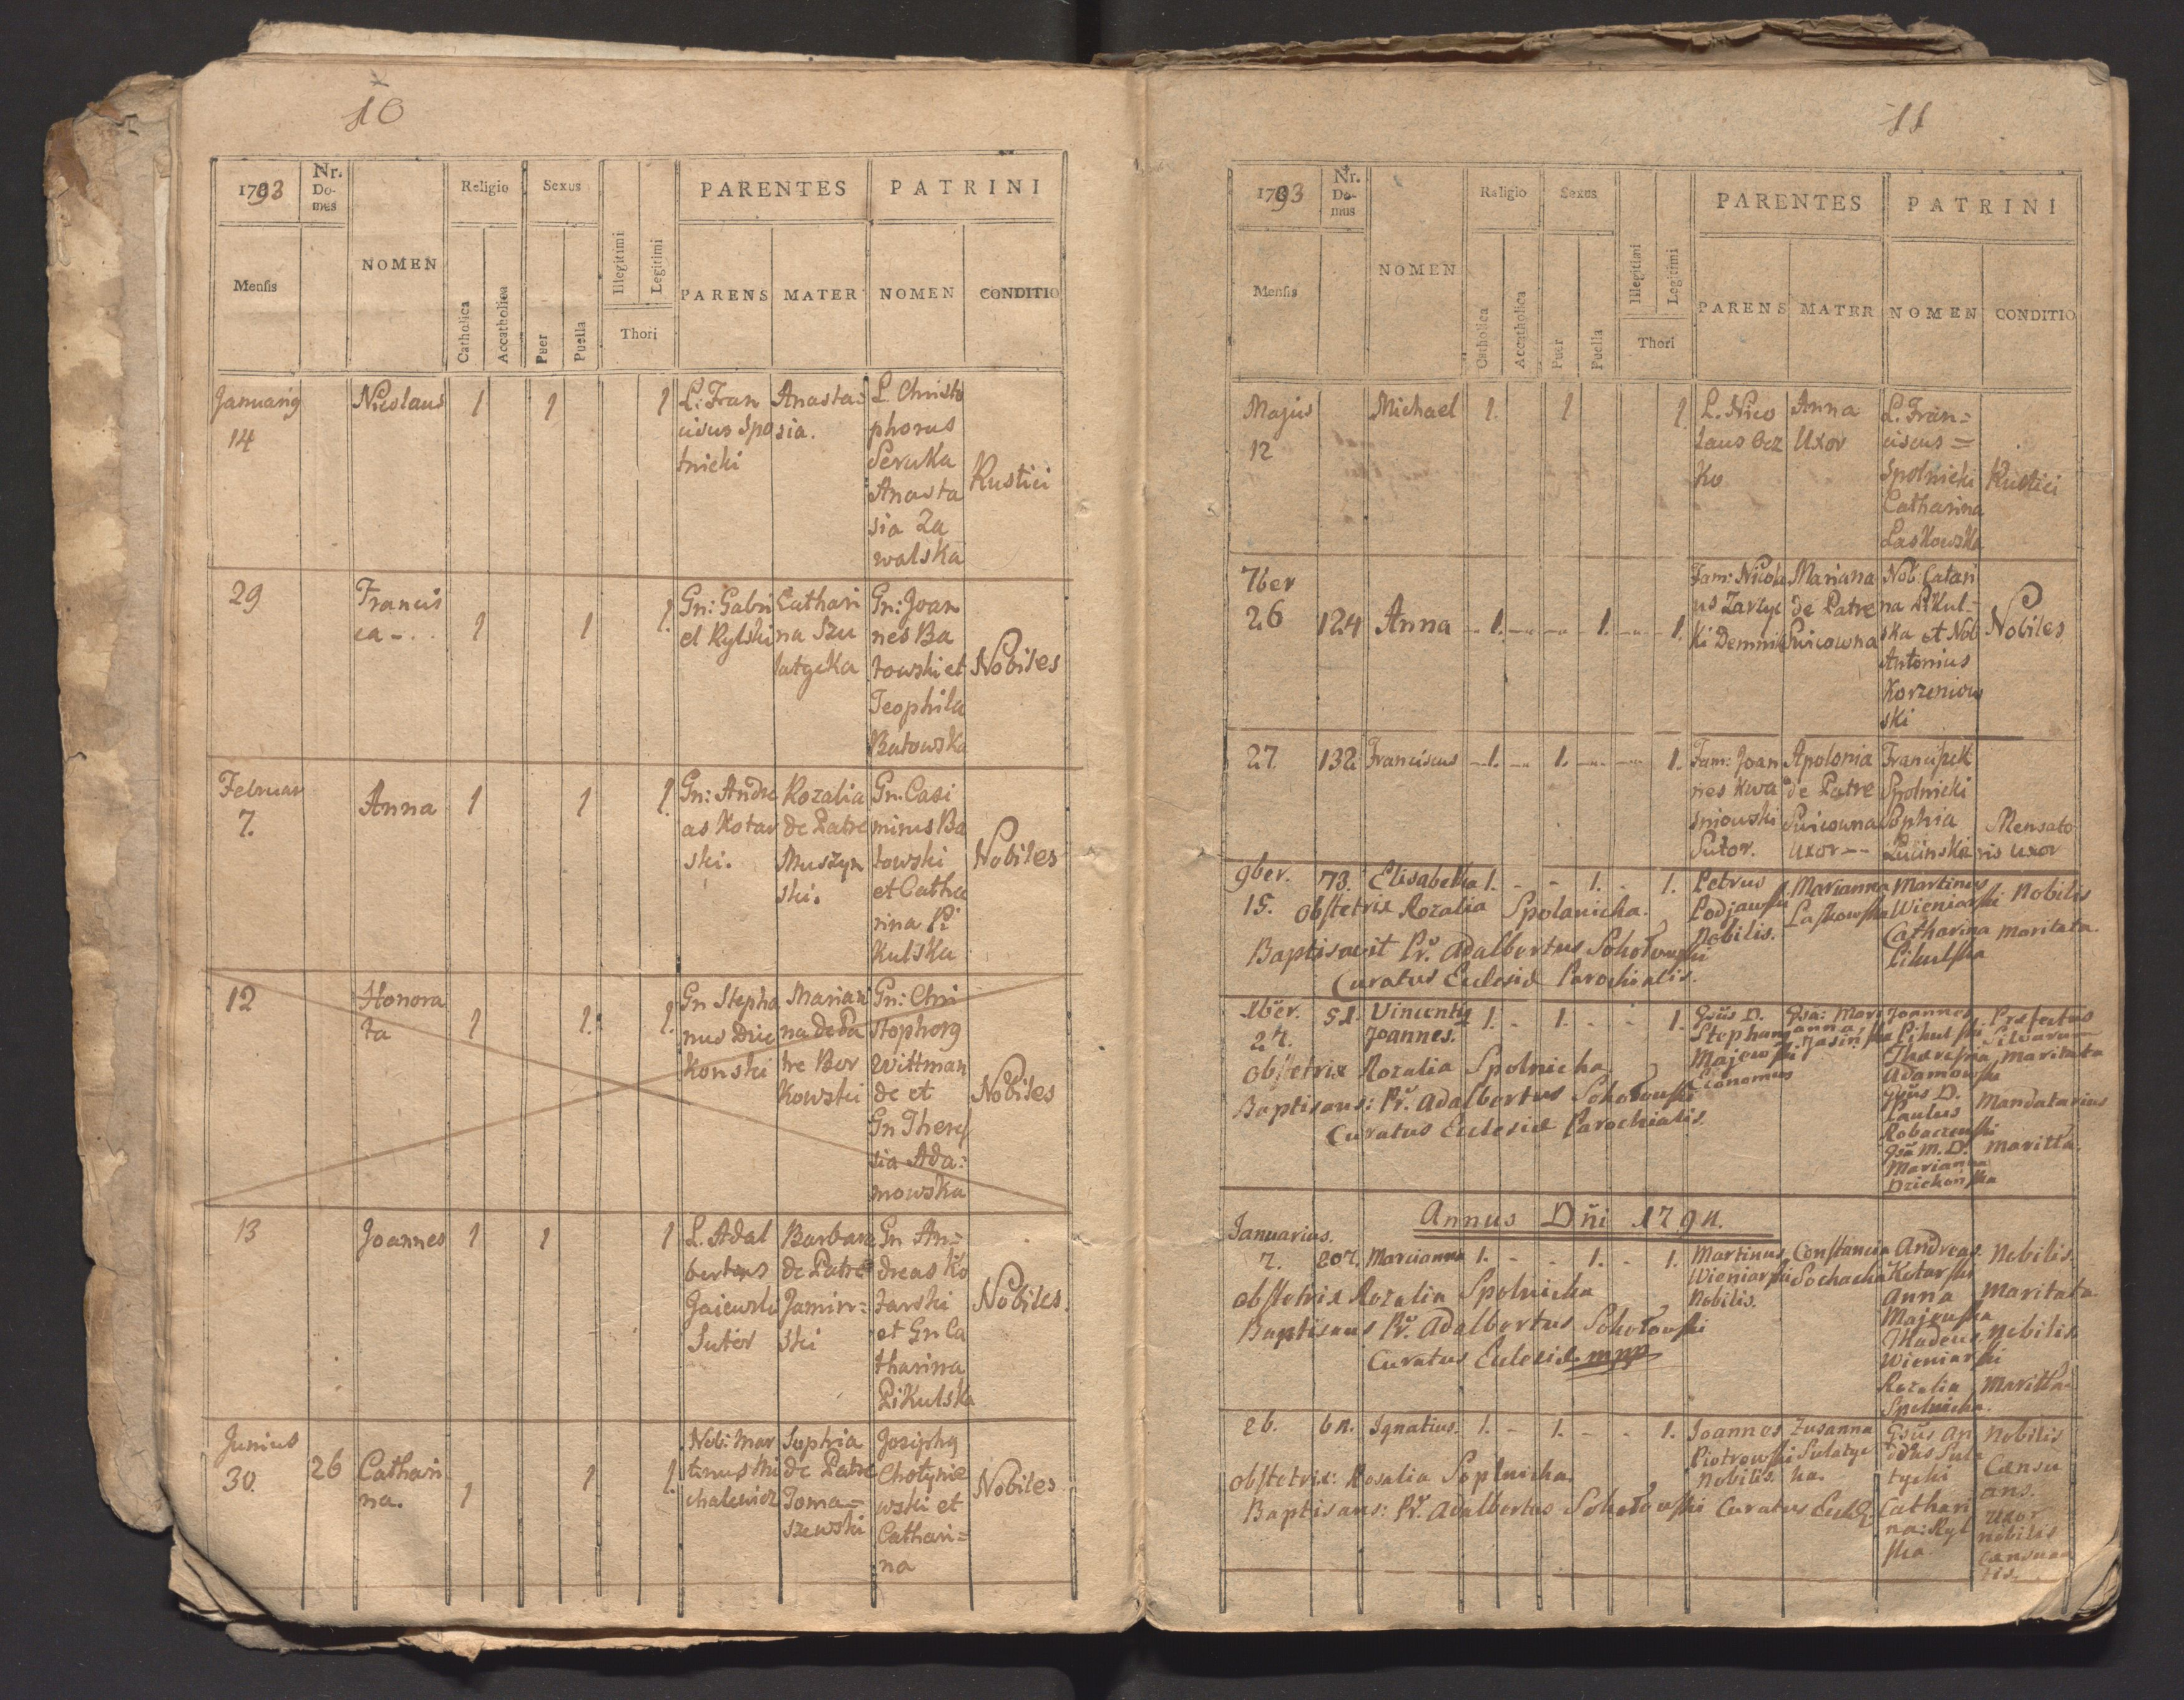 10
1793
Nr. Domes
NOMEN
Religio
Sexus
PARENTES
PATRINI
Mensis
Catholica
Accatholica
Puer
Puella
Illegitimi
Legitimi
Thori
PARENS
MATER
NOMEN
CONDITIO
Januarig
14
Nicolaus
1
1
1
L: Fran
ciscus Spo
lnicki
Anasta=
sia.
L. Christo
phorus
Seruka
Anasta
sia Za
walska
Rustici
29
Francis
ca - . .
1
1
1
Gn: Gabri
el Rylski
Cathari
na Szu
latycka
Gn: Joan
nes Ba
towski et
Teophila
Batowska
Nobiles
Februar
7.
Anna
1
1
1
Gn: Andre
as Kotar
ski.
Rozalia
de Patre
Muszyn
ski.
Gn. Casi
mirus Ba
towski
et Catha
rina Pi
kulska
Nobiles
12
Honora
ta
1
1.
1.
Gn Stepha
nus Dzie
konski
Marian
na de Pa
tre Bor
kowski
Gn: Chri
stophorg
Wittman
de et
Gn Theref
sia Ada=
mowska
Nobiles
13
Joannes
1
1
1
L. Adal
bertus
Gaiewski
Sutor
Barbara
de Patre
Jamin=
ski
Gn An=
dreas Ko
tarski
et Gn Ca
tharina
Pikulska
Nobiles.
Junius
30.
26
Cathari
na.
1
1
1.
Nob: Mar
tinus Mi
chalewicz
Sophia
de Patre
Toma=
szewski
Josiphg
Chotynie
wski et
Cathari=
na
Nobiles
11
1793
Nr. Domus
NOMEN
Religio
Sexus
PARENTES
PATRINI
Mensis
Catholica
Accatholica
Puer
Puella
Illegitimi
Legitimi
Thori
PARENS
MATER
NOMEN
CONDITIO
Majus
12
Michael
1.
1
1
L. Nico
laus Bez
ko
Anna
Uxor
L. Fran=
ciscus =
Spolnicki
Catharina
Laskowska
Rustici
7ber
26
124
Anna
1.
1.
1.
Fam: Nicola
us Zarzyc
ki Demnik
Mariana
de Patre
Swicowna
Nob. Catari
na Pikul=
ska et Nob
Antonius
Korzeniow
ski
Nobiles
27.
132
Franciscus
1.
1.
1.
Fam: Joan
nes Kwa
sniowski
Sutor.
Apolonia
de Patre
Swicowna
uxor --
Franciszek
Spolnicki
Sophia
Lucinska
Mensato
ris uxor
9ber.
15.
73.
Elisabetha
1.
1.
1.
Petrus
Podjawski
Nobilis.
Marianna
Laskowska
Martinus
Wieniarski
Catharina
Pikulska
Nobilis
maritata.
obstetrix Rozalia Spolanicka.
Baptisavit Pr. Adalbertus Sokołowski
Curatus Eclesiæ Parochialis.
Xber.
24.
51.
Vincentig
Joannes.
1.
1.
1.
Gsus D.
Stephang
Majewski
Economus
Gsa: Mari
anna
Jasińska
Joannes
Pikulski
Theresia
Adamowska
Gsus D.
Paulus
Robaczewski
Gsa M. D.
Marianna
Dziekońska
Prefectus
Silvarum
maritata
Mandatarius
maritta.
obstetrix Rozalia Spolnicka
Baptisans: Pr. Adalbertus Sokołowski
Curatus Eclesiæ Parochialis.
Annus Dñi 1794.
Januarius.
7.
207.
Marianna
1.
1.
1.
Martinus
Wieniarski
Nobilis.
Constancia
Sochacka
Andreas
Kotarski
Anna
Majewska
Thadeus
Wieniarski
Rozalia
Spolnicka.
Nobilis.
maritata
Nobilis
maritta
obstetrix Rozalia Spolnicka
Baptisans Pr. Adalbertus Sokołowski
Curatus Eclesiæ mpp
26.
64.
Ignatius.
1.
1.
1.
Joannes
Piotrowski
Nobilis.
Zusanna
Sulatyc
ka.
Gsus An
Sula
tycki
Cathari
na: Ryl
ska.
Nobilis
Censu
ans.
uxor
nobilis
Censuan
tis.
obstetrix: Rosalia Soplnicka.
Baptisans: Pr. Adalbertus Sokołowski Curatus Eccl.